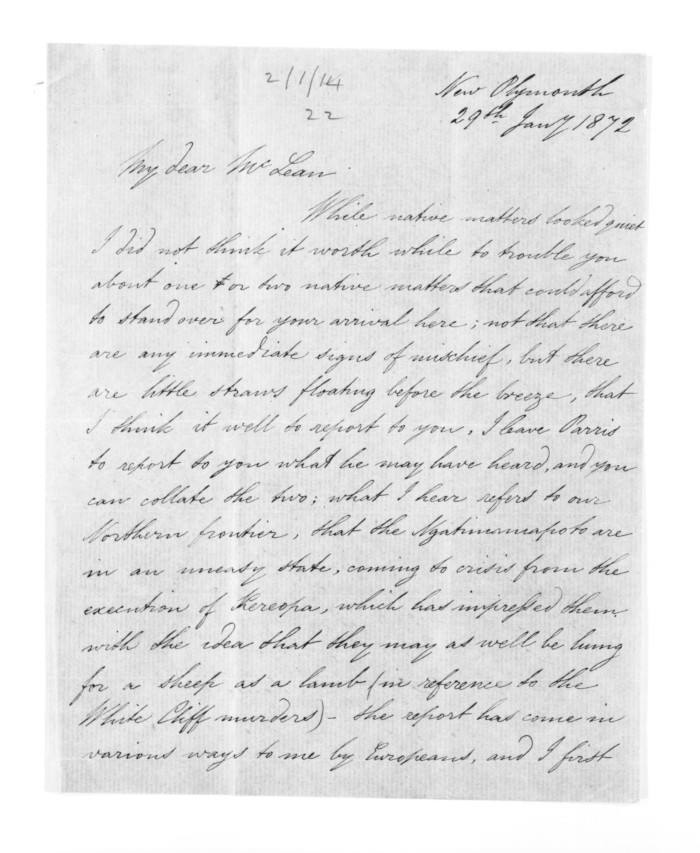 2/1/14
22
New Plymouth
29th Jany 1872
My dear McLean
While native matters looked quiet
I did not think it worth while to trouble you
about one or two native matters that could afford
to stand over for your arrival here; not that there
are any immediate signs of mischief, but there
are little straws floating before the breeze, that
I think it well to report to you, I leave Parris
to report to you what he may have heard, and you
can collate the two; what I hear refers to our
Northern frontier, that the Ngatimaniapoto are
in an uneasy state, coming to crisis from the
execution of Kereopa, which has impressed them
with the idea that they may as well be hung
for a sheep as a lamb (in reference to the
White Cliff murders) - the report has come in
various ways to me by Europeans, and I first